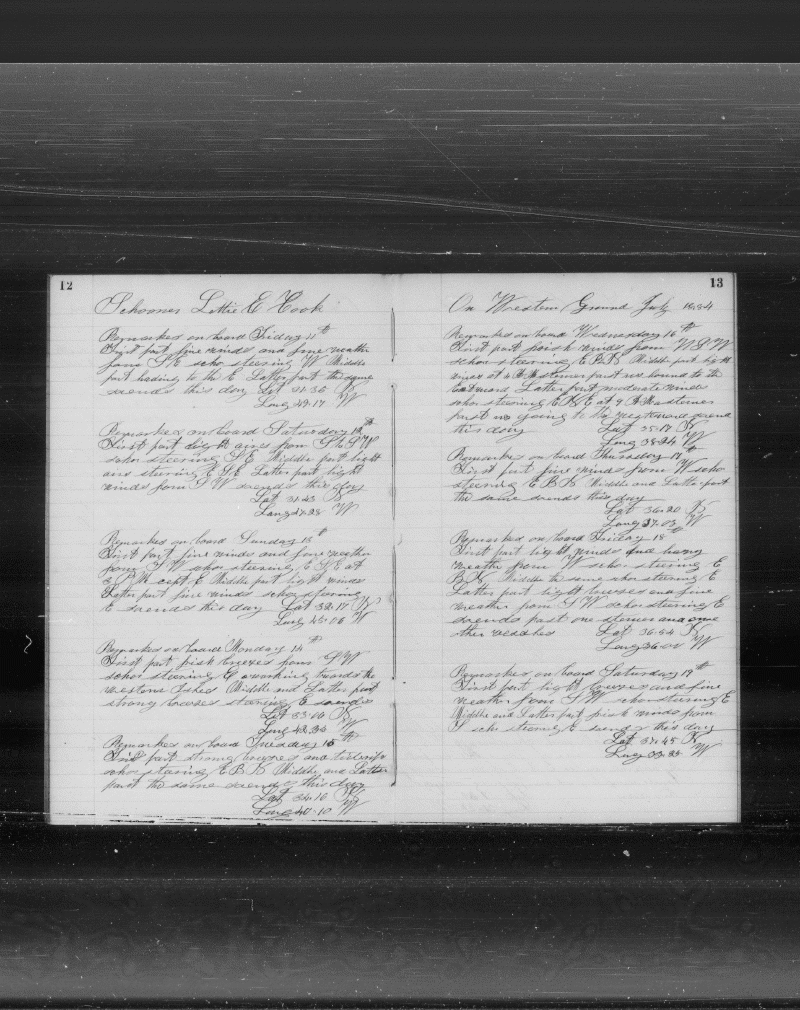 12
Schooner Lottie E Cook
Remarks on board Friday 11th
First part fine winds and fine weather
from S E schr steering W Middle
part heading to the E Latter part the same
so ends this day Lat 31.36 N
Long 49.17 W
Remarks on board Saturday 12th
First part light airs from
schr steering S E Middle part light
airs steering E S E Latter part light
winds from S W so ends this day
Lat 31.43 N
Long 47.28 W
Remarks on board Sunday 13th
First part fine winds and fine weather
from S W schr steering E S E at
3 P M kept E Middle part light winds
Latter part fine winds schr steering
E so ends this day Lat 32.17 N
Long 45.06 W
Remarks on board Monday 14th
First part brisk breezes from S W
schr steering E working towards the
western Isles Middle and Latter part
strong breezes steering E so ends
Lat 33.16 N
Long 42.34 W
Remarks on board Tuesday 15th
First part strong breezes and
schr steering E B N Middle and Latter
part the same so ends this day
Lat 34.16 N
Long 40.10 W
13
On Western Ground July 1884
Remarks on board Wednesday 16th
First part brisk winds from W S W
schr steering E B N Middle part light
winds at a steamer past us bound to the
Eastward Latter part moderate winds
schr steering E B N at 9 A M a steamer
past us going to the westward so ends
this day Lat 35.18 N
Long 38.24 W
Remarks on board Thursday 17th
First part fine winds from W schr
steering E B N Middle and Latter part
the same so ends this day
Lat 36.20 N
Long 37.03 W
Remarks on board Friday 18th
First part light winds and
weather from W schr steering E
B N Middle the same schr steering E
Latter part light breezes and fine
weather from S W schr steering E
so ends past one steamer and some
other vessels Lat 36.54 N
Long 36.01 W
Remarks on board Saturday 19th
First part light breezes and fine
weather from S W schr steering E
Middle and Latter part brisk winds from
S schr steering E so ends this day
Lat 37.45 N
Long 33.28 W